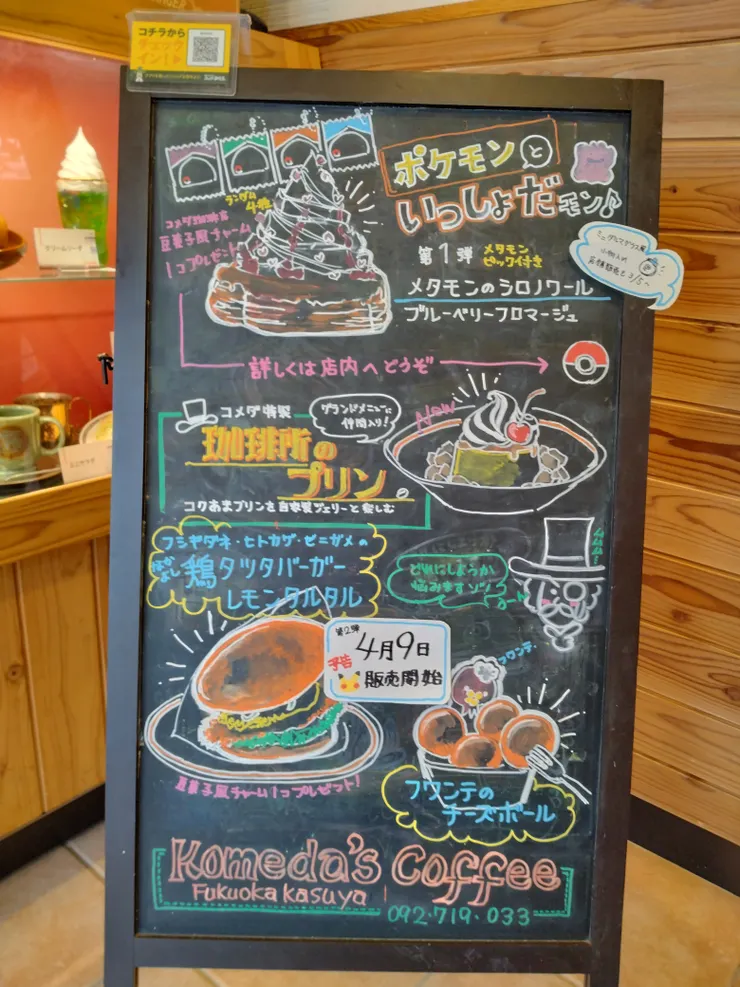 コチラから
チェック
イン!
ポケモンと
いっしょだモン♪
ランダム
4種
コメダ珈琲店
豆菓子風チャーム
1コプレゼント!
第1弾
メタモン
ピック付き
メタモンのシロノワール
ブルーベリーフロマージュ
小物入れ
3/5〜
詳しくは店内へどうぞ
クリームソーダ
コメダ特製
グランドメニューに
仲間入り!
New
珈琲所の
プリン
コクあまプリンを自家製ジェリーと楽しむ
フシギダネ・ヒトカゲ・ゼニガメの
なかよし
鶏タツタバーガー
レモンタルタル
どれにしようか
悩みますゾ
第2弾
予告
4月9日
販売開始
フワンテ
豆菓子風チャーム1コプレゼント!
フワンテの
チーズボール
Komeda's Coffee
Fukuoka Kasuya
092・719・033